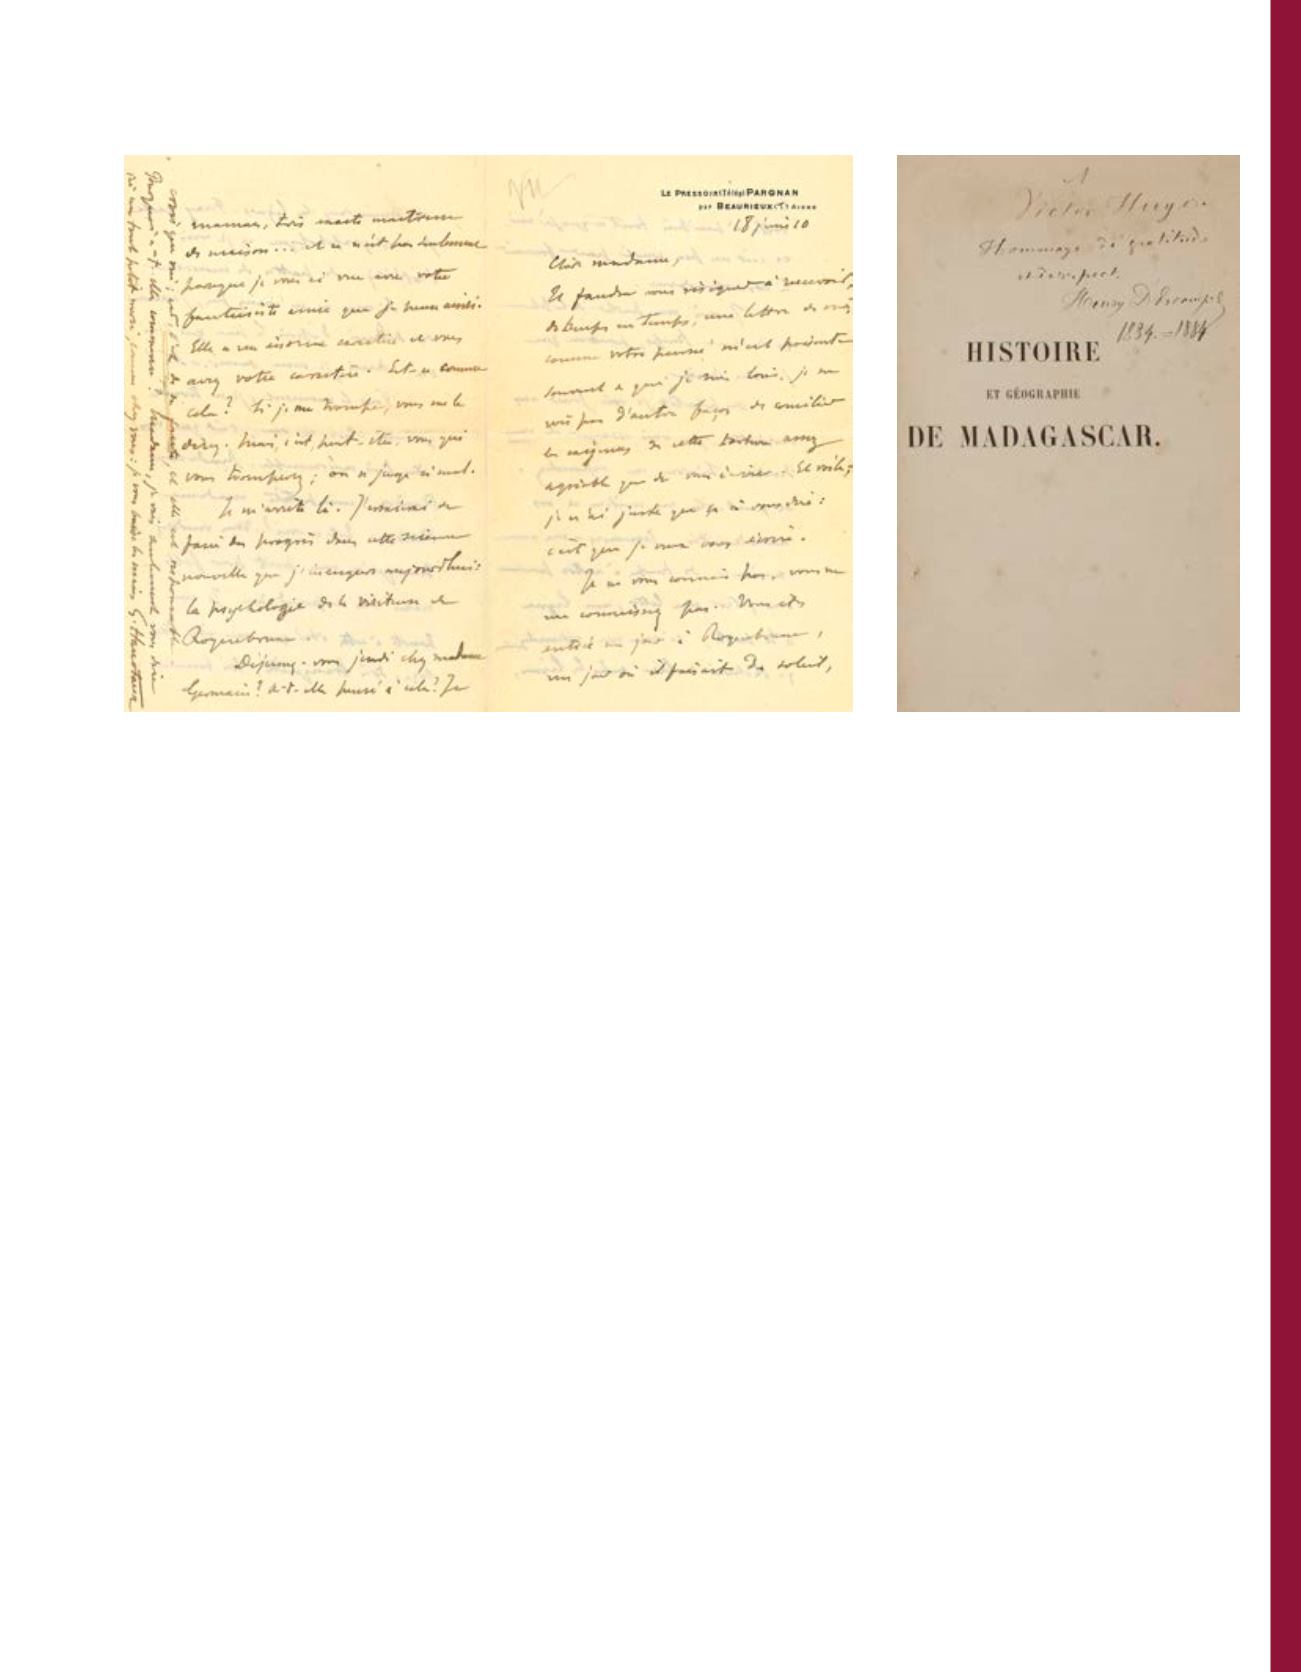 LE PRESSOIR (Télég) PARGNAN
par BEAURIEUX (T) AISNE
18 juin 10
Chère madame,
Il faudra vous résigner à recevoir,
de temps en temps, une lettre de moi
comme votre pensée m'est présente
souvent et que je suis loin, je ne
vois pas d'autre façon de concilier
les exigences de cette torture assez
agréable que de vous écrire. Et voilà;
je n'ai juste que ça à vous dire :
c'est que je veux vous écrire.
Je ne vous connais pas, vous ne
me connaissez pas. Vous êtes
entrée un jour à Roquebrune,
un jour où il faisait du soleil,
maman, trois
de maison... et ce n'est pas seulement
parce que je vous ai vue avec votre
fantaisiste amie que je pense ainsi.
Elle a un énorme caractère et vous
avez votre caractère. Est-ce comme
cela? Si je me trompe, vous me le
direz. Mais, c'est, peut-être, vous qui
vous tromperez; on se juge si mal.
Je m'arrête là. J'essaierai de
faire des progrès dans cette science
nouvelle que j'inaugure aujourd'hui:
la psychologie de la visiteuse de
Roquebrune.
Déjeunez-vous jeudi chez madame
Germain? a-t-elle pensé à cela? Je
de sa faute, et elle est responsable
Pourquoi a-t-elle commencé? Madame, je vais seulement vous dire
chez vous: je vous baise les mains G. Hanotaux
A
Victor Hugo.
Hommage de gratitude
et de respect.
Henry D'Escamps
1834.-1884
HISTOIRE
ET GÉOGRAPHIE
DE MADAGASCAR.